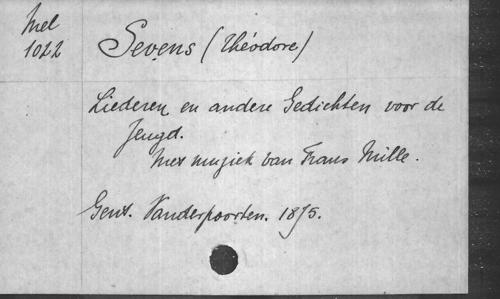 Mel
1022
Sevens (Théodore)
Liederen en andere Gedichten voor de
Jeugd.
Met muziek van Frans Mille.
Gent. Vanderpoorten. 1875.